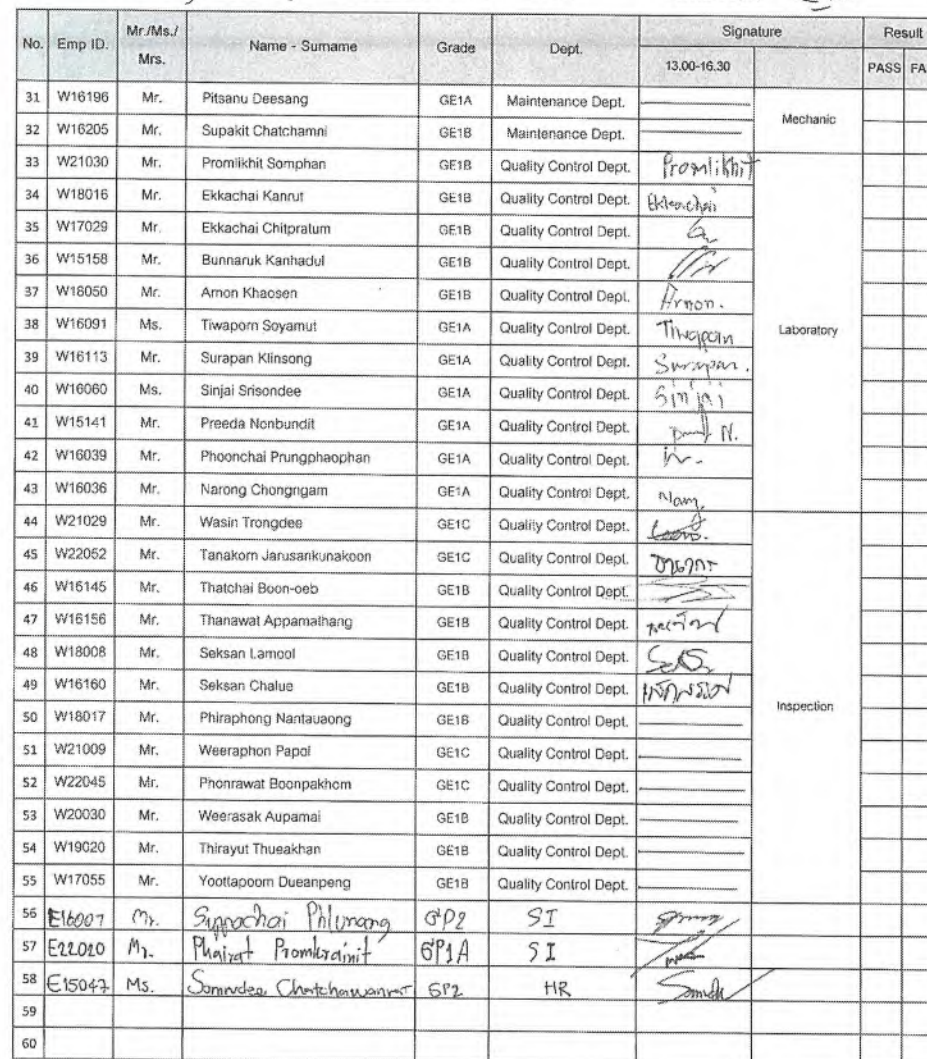 No. Emp ID. Mr./Ms./Mrs. Name - Surname Grade Dept. Signature Result
13.00-16.30 PASS FA
31 W16196 Mr. Pitsanu Deesang GE1A Maintenance Dept. Mechanic
32 W16205 Mr. Supakit Chatchamni GE1B Maintenance Dept.
33 W21030 Mr. Promlikhit Somphan GE1B Quality Control Dept. Promlikhit Laboratory
34 W18016 Mr. Ekkachai Kanrut GE1B Quality Control Dept. Ekkachai
35 W17029 Mr. Ekkachai Chitpratum GE1B Quality Control Dept.
36 W15158 Mr. Bunnaruk Kanhadul GE1B Quality Control Dept.
37 W18050 Mr. Arnon Khaosen GE1B Quality Control Dept. Arnon.
38 W16091 Ms. Tiwaporn Soyamut GE1A Quality Control Dept. Tiwaporn
39 W16113 Mr. Surapan Klinsong GE1A Quality Control Dept. Surapan.
40 W16060 Ms. Sinjai Srisondee GE1A Quality Control Dept. Sinjai
41 W15141 Mr. Preeda Nonbundit GE1A Quality Control Dept. N.
42 W16039 Mr. Phoonchai Prungphaophan GE1A Quality Control Dept.
43 W16036 Mr. Narong Chongngam GE1A Quality Control Dept.
44 W21029 Mr. Wasin Trongdee GE1C Quality Control Dept. Inspection
45 W22052 Mr. Tanakorn Jarusankunakoon GE1C Quality Control Dept. ธนากร
46 W15145 Mr. Thatchai Boon-oeb GE1B Quality Control Dept.
47 W16156 Mr. Thanawat Appamathang GE1B Quality Control Dept.
48 W18008 Mr. Seksan Lamool GE1B Quality Control Dept.
49 W16160 Mr. Seksan Chalue GE1B Quality Control Dept.
50 W18017 Mr. Phiraphong Nantauaong GE1B Quality Control Dept.
51 W21009 Mr. Weeraphon Papol GE1C Quality Control Dept.
52 W22045 Mr. Phonrawat Boonpakhom GE1C Quality Control Dept.
53 W20030 Mr. Weerasak Aupamai GE1B Quality Control Dept.
54 W19020 Mr. Thirayut Thueakhan GE1B Quality Control Dept.
55 W17055 Mr. Yoottapoom Dueanpeng GE1B Quality Control Dept.
56 E16007 Mr. GP2 SI
57 E22020 Mr. Phairat GP1A SI
58 E15047 Ms. GP2 HR
59
60